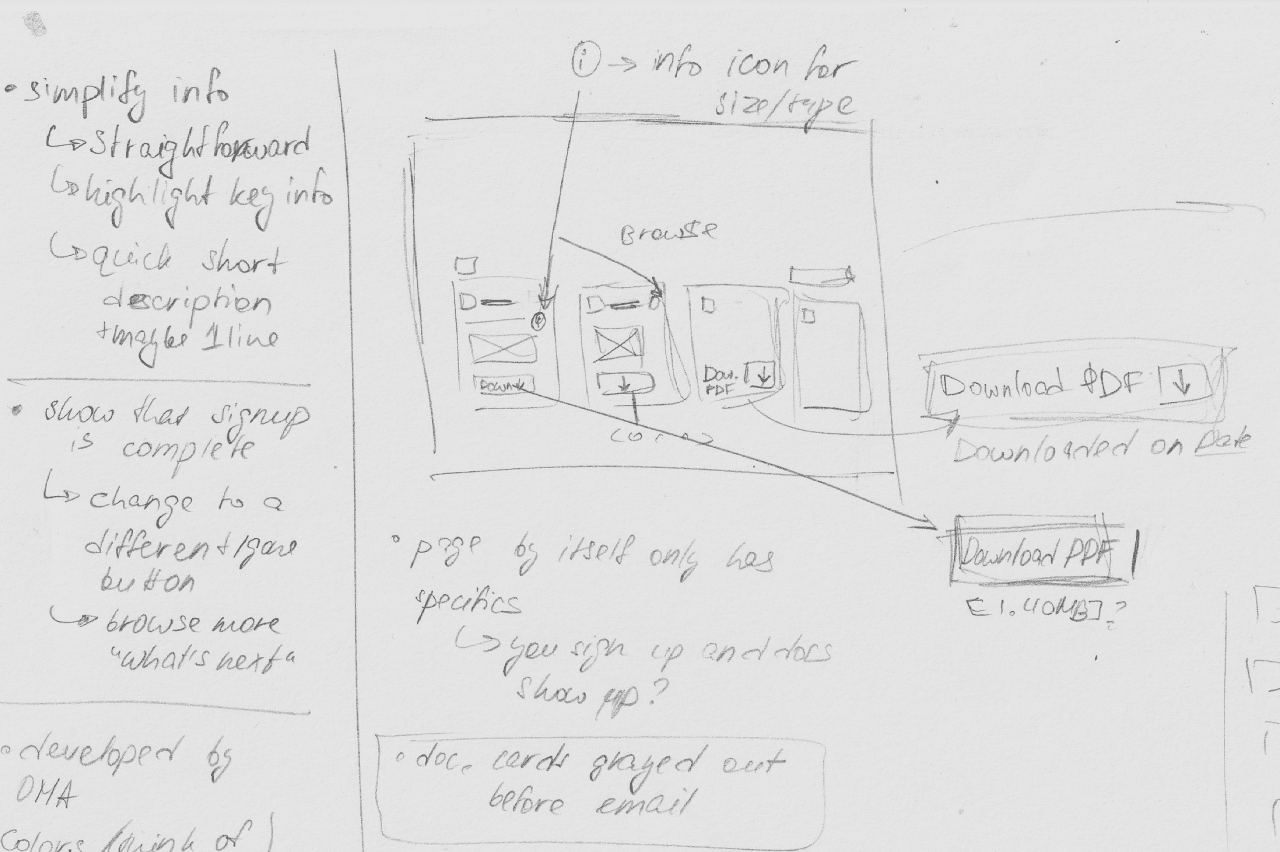 • simplify info
↳ straightforward
↳ highlight key info
↳ quick short
description
+maybe 1 line
• show that signup
is complete
↳ change to a
different/gone
button
↳ browse more
"what's next"
• developed by
OMA
Colors (think of
i → info icon for
size/type
Browse
Down.
PDF
Download PDF
Downloaded on Date
Download PDF
[1.40MB]?
• page by itself only has
specifics
↳ you sign up and docs
show up?
• doc. cards grayed out
before email